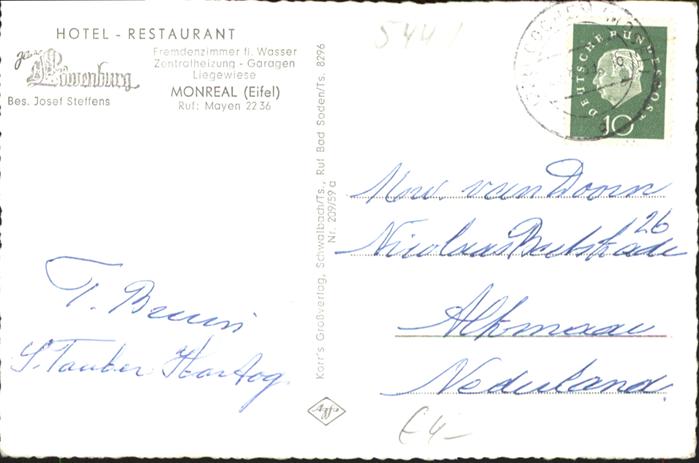 HOTEL - RESTAURANT
zur Löwenburg
Bes. Josef Steffens
Fremdenzimmer fl. Wasser
Zentralheizung - Garagen
Liegewiese
MONREAL (Eifel)
Ruf: Mayen 22 36
544
DEUTSCHE BUNDESPOST
10
Korr's Großverlag, Schwalbach/Ts., Ruf Bad Soden/Ts. 8296
Nr. 209/59 a
Agfa
Mevr. van Doorn
Nicolaas Beetskade 26
Alkmaar
Nederland.
T. Bruin
S. Tauber Hartog
€4-